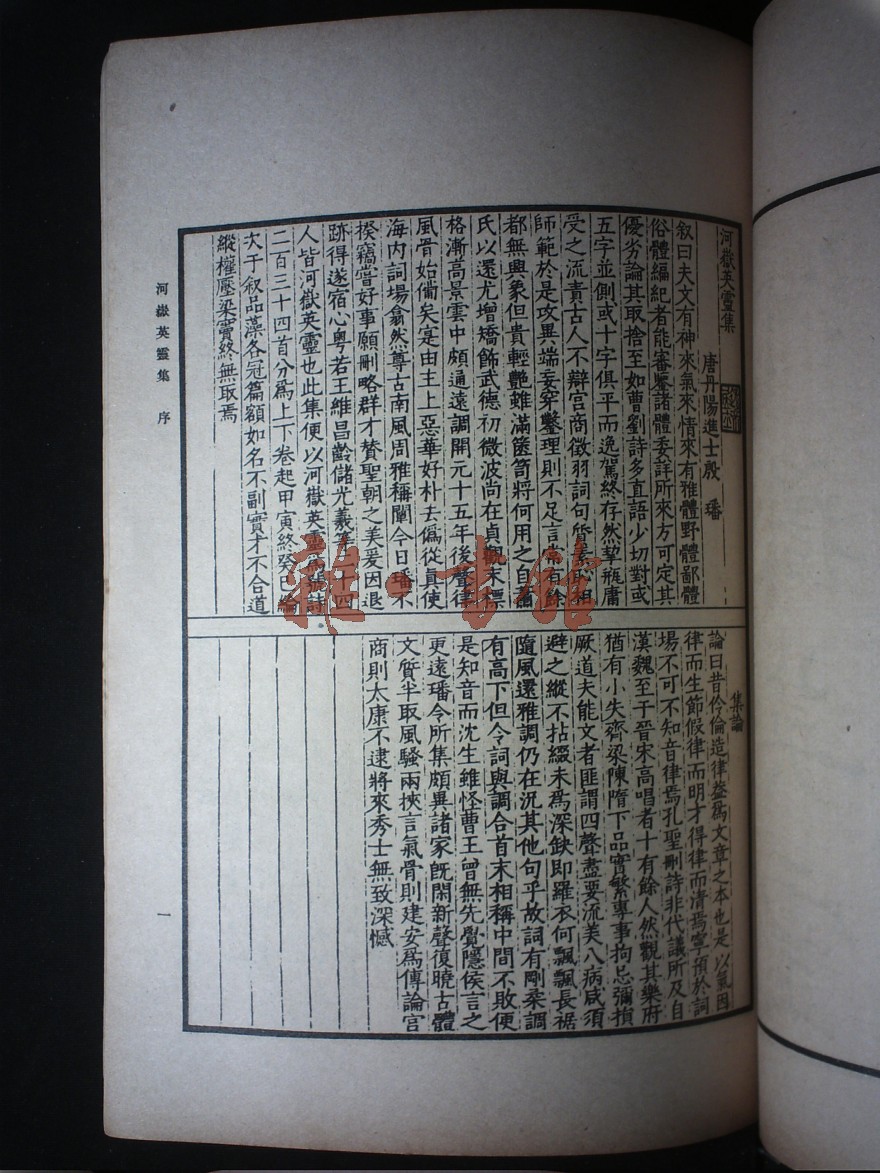 河嶽英靈集
唐丹陽進士殷　璠
叙曰夫文有神來氣來情來有雅體野體鄙體
俗體編紀者能審鑒諸體委詳所來方可定其
優劣論其取捨至如曹劉詩多直語少切對或
五字並側或十字俱平而逸駕終存然挈瓶庸
受之流責古人不辯宫商徵羽詞句質素恥相
師範於是攻異端妄穿鑿理則不足言常有餘
都無興象但貴輕艷雖滿篋笥將何用之自蕭
氏以還尤增矯飾武德初微波尚在貞觀末標
格漸高景雲中頗通遠調開元十五年後聲律
風骨始備矣寔由主上惡華好朴去偽從真使
海内詞場翕然尊古南風周雅稱闡今日璠不
揆竊嘗好事願刪略群才賛聖朝之美爰因退
跡得遂宿心粤若王維昌齡儲光羲等二十四
人皆河嶽英靈也此集便以河嶽英靈爲號詩
二百三十四首分爲上下卷起甲寅終癸巳綸
次于叙品藻各冠篇額如名不副實才不合道
縱權壓梁竇終無取焉
集論
論曰昔伶倫造律蓋爲文章之本也是以氣因
律而生節假律而明才得律而清焉寧預於詞
場不可不知音律焉孔聖刪詩非代議所及自
漢魏至于晉宋高唱者十有餘人然觀其樂府
猶有小失齊梁陳隋下品實繁專事拘忌彌損
厥道夫能文者匪謂四聲盡要流美八病咸須
避之縱不拈綴未爲深缺即羅衣何飄飄長裾
隨風還雅調仍在況其他句乎故詞有剛柔調
有高下但令詞與調合首末相稱中間不敗便
是知音而沈生雖怪曹王曾無先覺隱侯言之
更遠璠今所集頗異諸家既閑新聲復曉古體
文質半取風騷兩挾言氣骨則建安爲傳論宫
商則太康不逮將來秀士無致深憾
河嶽英靈集　序
一
雜·書館